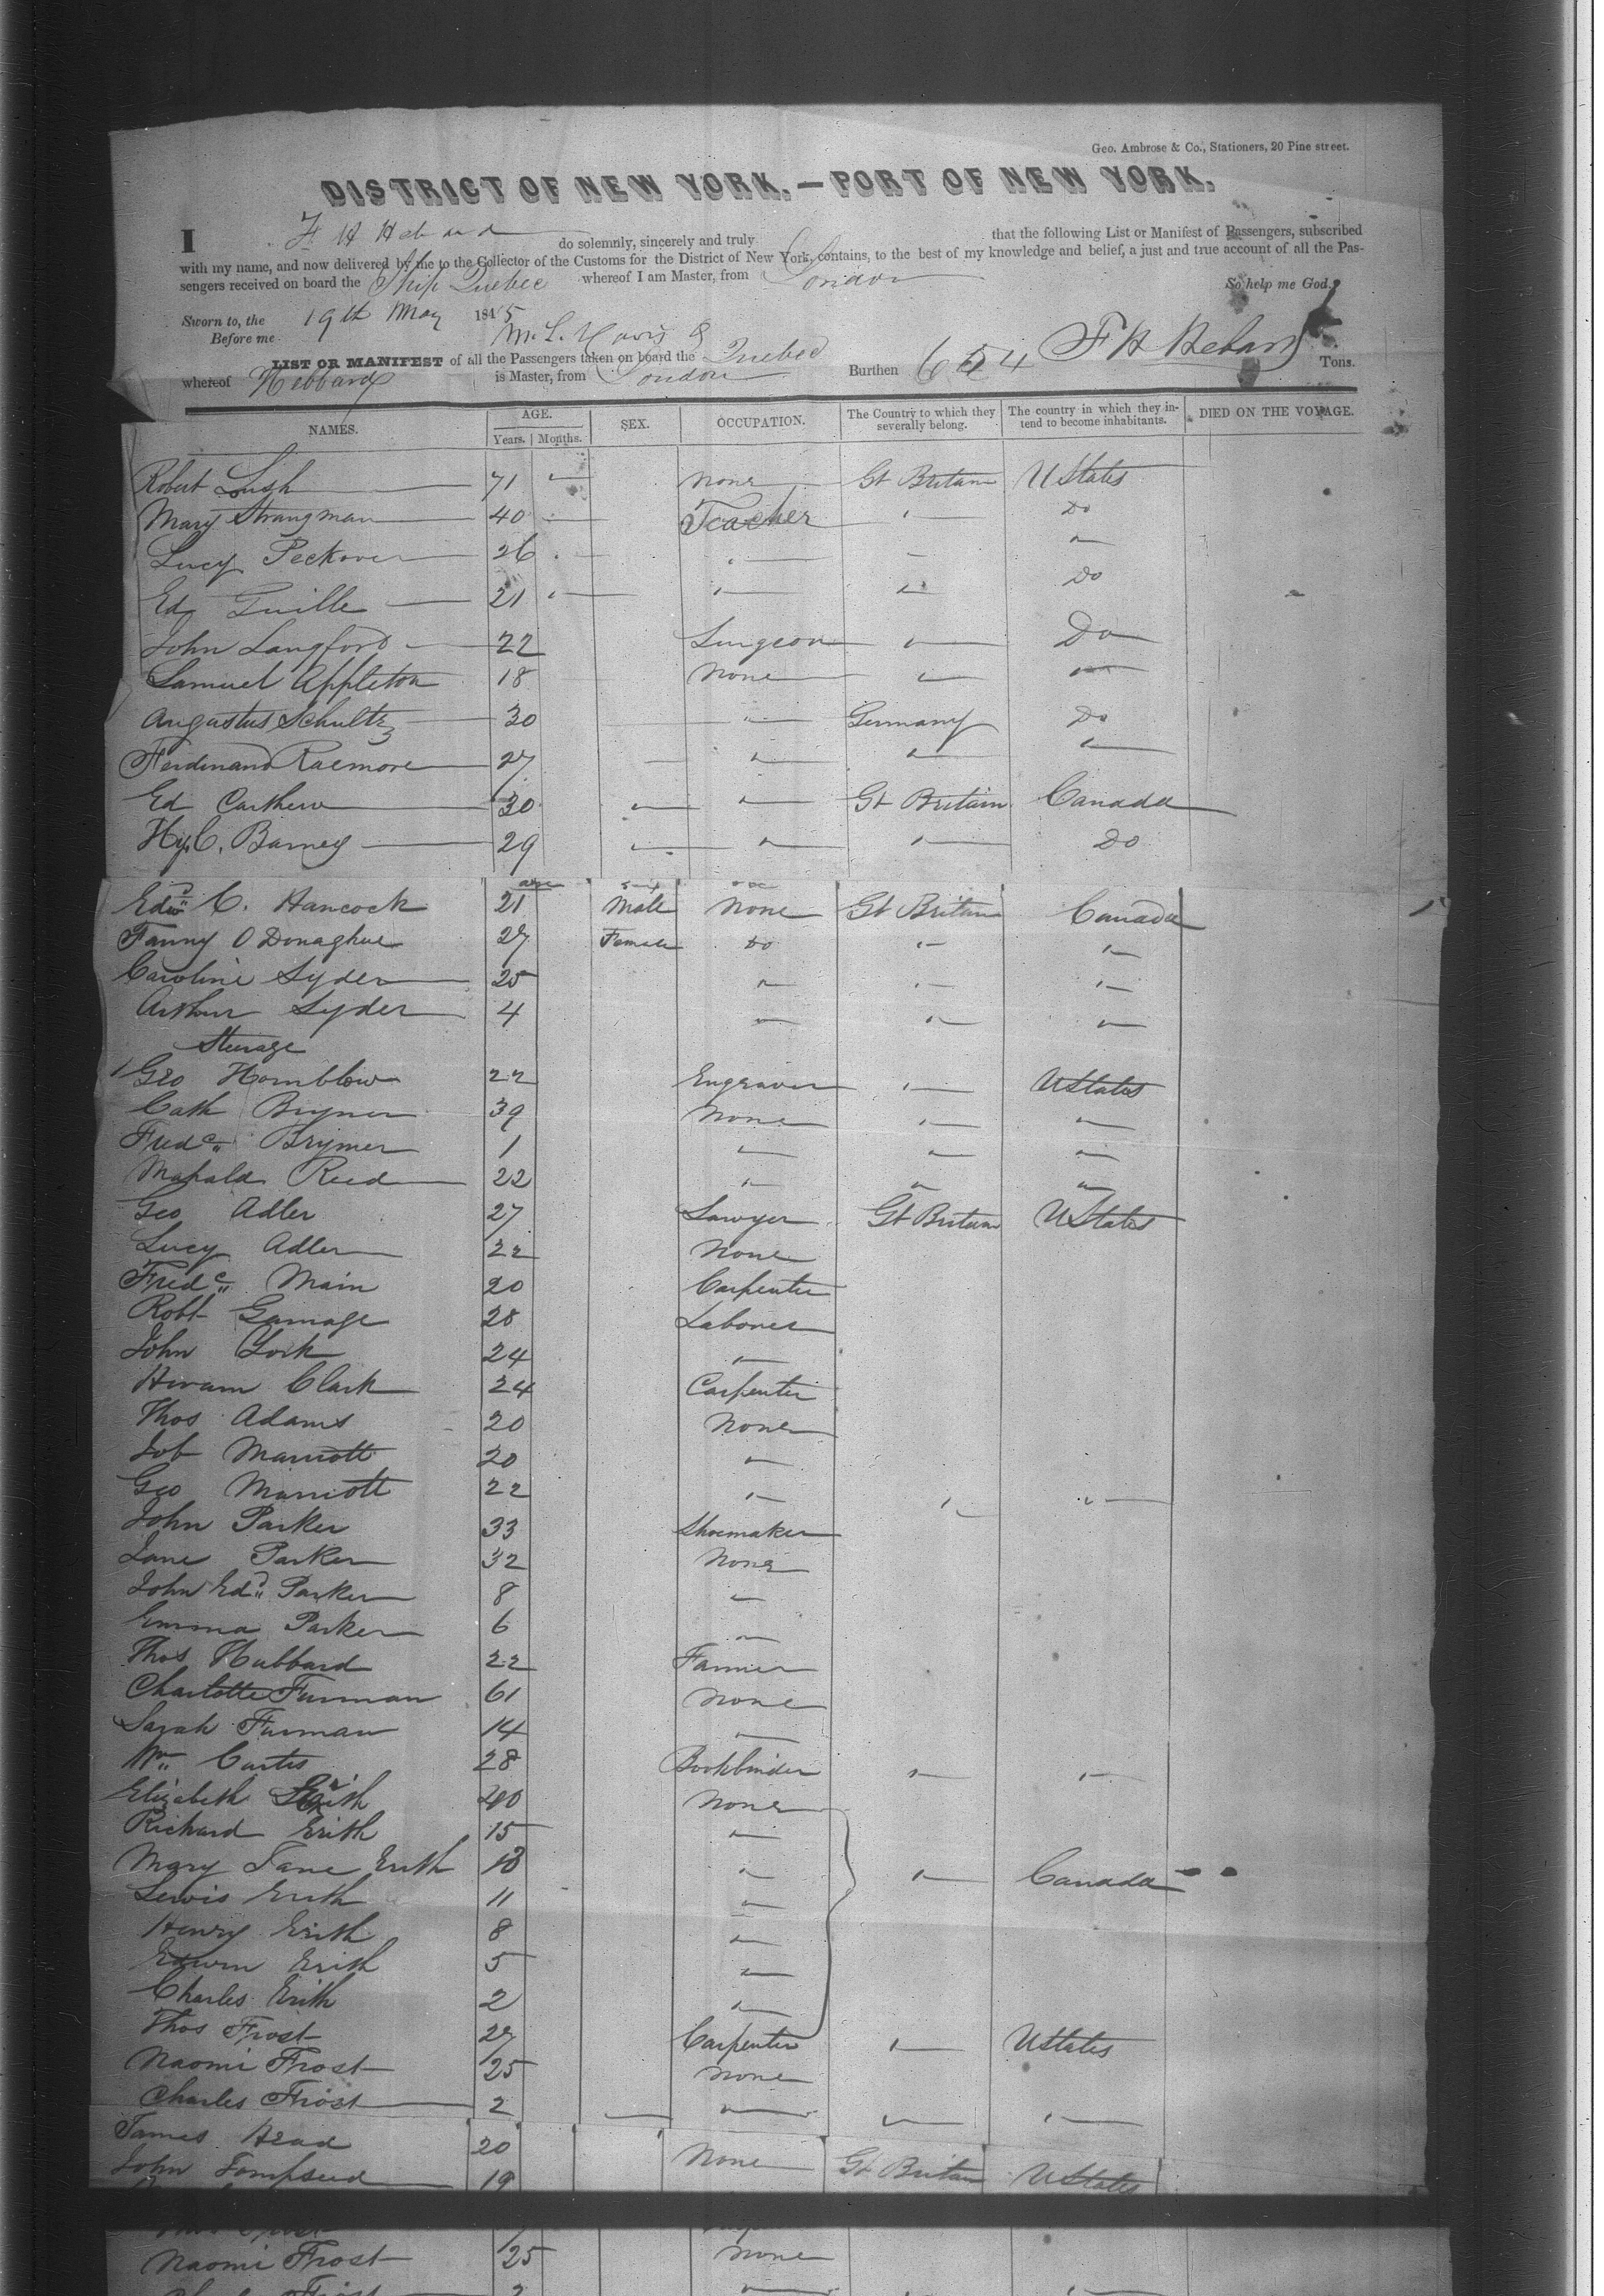 Geo. Ambrose & Co., Stationers, 20 Pine street.
DISTRICT OF NEW YORK.—PORT OF NEW YORK.
I F H Hebard do solemnly, sincerely and truly that the following List or Manifest of Passengers, subscribed
with my name, and now delivered by me to the Collector of the Customs for the District of New York, contains, to the best of my knowledge and belief, a just and true account of all the Pas-
sengers received on board the Ship Quebec whereof I am Master, from London So help me God.
Sworn to, the 19th May 1845
Before me F H Hebard
LIST OR MANIFEST of all the Passengers taken on board the Quebec
whereof Hebbard is Master, from London Burthen 654 Tons.
NAMES. AGE. Years. Months. SEX. OCCUPATION. The Country to which they severally belong. The country in which they intend to become inhabitants. DIED ON THE VOYAGE.
Robert Lush 71 " None Gt Britain U States
Mary Strangman 40 Teacher " Do
Lucy Peckover 26 " " "
Ed Guille 21 " " " Do
John Langford 22 Surgeon " Do
Samuel Appleton 18 None " "
Augustus Schultz 30 " Germany Do
Ferdinand Raemore 27 " " "
Ed Carthew 30 " " Gt Britain Canada
Hy C. Barney 29 " " " Do
age sex occ
Edwd C. Hancock 21 Male None Gt Britain Canada
Fanny O Donaghue 27 Female Do " "
Caroline Syder 25 " " "
Arthur Syder 4 " " "
Sterage
Geo Hornblow 22 Engraver " U States
Cath Brymer 39 None " "
Fredc Brymer 1 " " "
Mahala Reed 22 " " "
Geo Adler 27 Sawyer Gt Britain U States
Lucy Adler 22 None
Fredc Main 20 Carpenter
Robt Gamage 28 Laborer
John York 24 "
Hiram Clark 24 Carpenter
Thos Adams 20 None
Job Marriott 20 "
Geo Marriott 22 " " "
John Parker 33 Shoemaker
Jane Parker 32 None
John Edd Parker 8 "
Emma Parker 6 "
Thos Hubbard 22 Farmer
Charlotte Furman 61 None
Sarah Furman 14 "
Wm Curtis 28 Bookbinder " "
Elizabeth Erith 40 None
Richard Erith 15 "
Mary Jane Erith 13 " " Canada
Lewis Erith 11 "
Henry Erith 8 "
Edwin Erith 5 "
Charles Erith 2 "
Thos Frost 27 Carpenter " U States
Naomi Frost 25 None
Charles Frost 2 " " "
James Head 20
John Tompsed 19 None Gt Britain U States
Naomi Frost 25 None